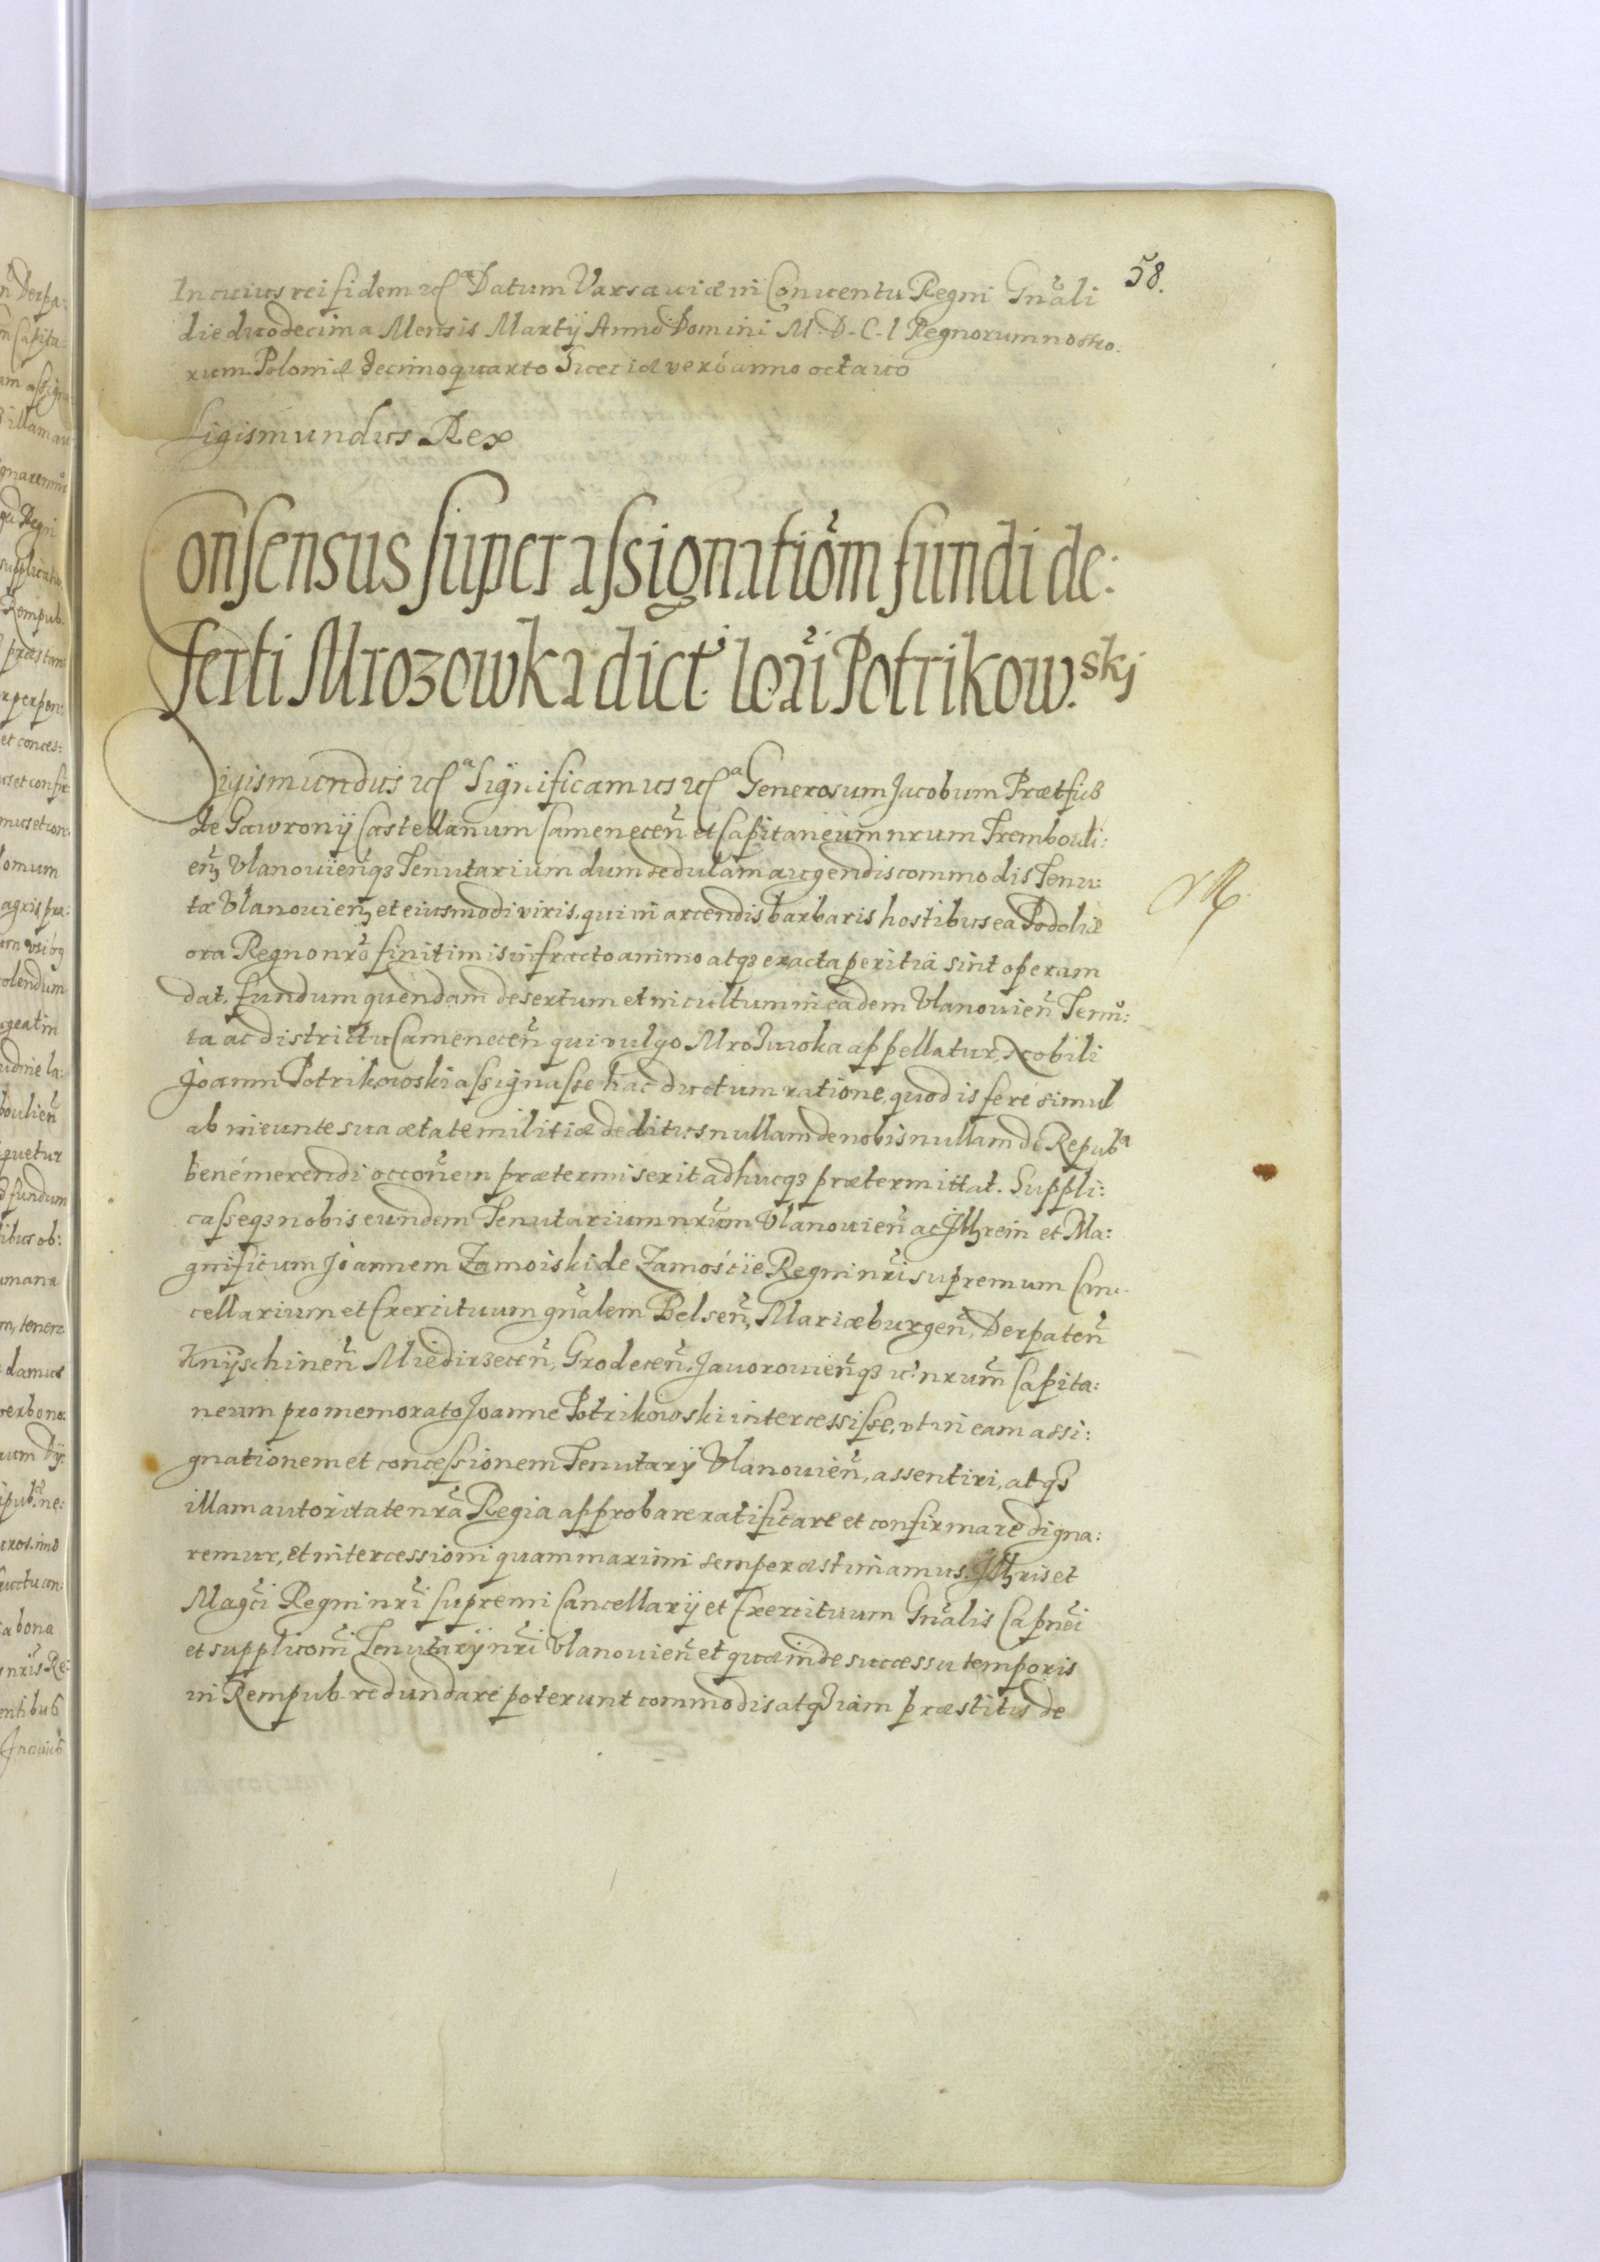 58.
In cuius rei fidem etc. Datum Varsauiæ in Conuentu Regni Gn̄ali
die duodecima Mensis Martij Anno Domini M.D.C.I Regnorum nostro:
rum Poloniæ decimoquarto Sueciæ verò anno octauo
Sigismundus Rex
Consensus super assignatiōm fundi de:
serti Mrozowka dict. Ioāi Potrikow.skj
Sigismundus etc. Significamus etc. Generosum Jacobum Prætfus
de Gawronij Castellanum Camenecen̄ et Capitaneum nrum Trembouli:
en̄ Vlanouien̄qз Tenutarium dum sedulam augendis commodis Tenu:
tæ Vlanouien̄ et eiusmodi viris, qui in arcendis barbaris hostibus ea Podoliæ
ora Regno nrō finitimis infracto animo atqз exacta peritia sint operam
dat, fundum quendam desertum et incultum in eadem Vlanouien̄ Tenu:
ta ac districtu Camenecen̄ qui vulgo Mrozuwka appellatur, Nobili
Joanni Potrikowski assignasse hac ductum ratione, quod is ferè simul
ab ineunte sua ætate militiæ deditus nullam de nobis nullam de Repub.
benè merendi occon̄em prætermiserit adhucqз prætermittat. Suppli:
casseqз nobis eundem Tenutarium nrūm Vlanouien̄ ac Jllrem et Ma:
gnificum Joannem Zamoiski de Zamoście Regni nrī supremum Can:
cellarium et Exercituum gn̄alem Belsen̄, Mariæburgen̄, Derpaten̄
Knijschinen̄ Miedirzecen̄, Grodecen̄, Jauorouien̄qз etc. nrūm Capita:
neum pro memorato Joanne Potrikowski intercessisse, vt in eam assi:
gnationem et concessionem Tenutarij Vlanouien̄, assentiri, atqз
illam autoritate nrā Regia approbare ratificare et confirmare digna:
remur, et intercessioni quam maximi semper æstimamus Jllris et
Magci Regni nrī supremi Cancellarij et Exercituum Gn̄alis Capnei
et supplicōni Tenutarij nrī Vlanouien̄ et quæ inde successu temporis
in Rempub. redundare poterunt commodis atqз iam præstitis de